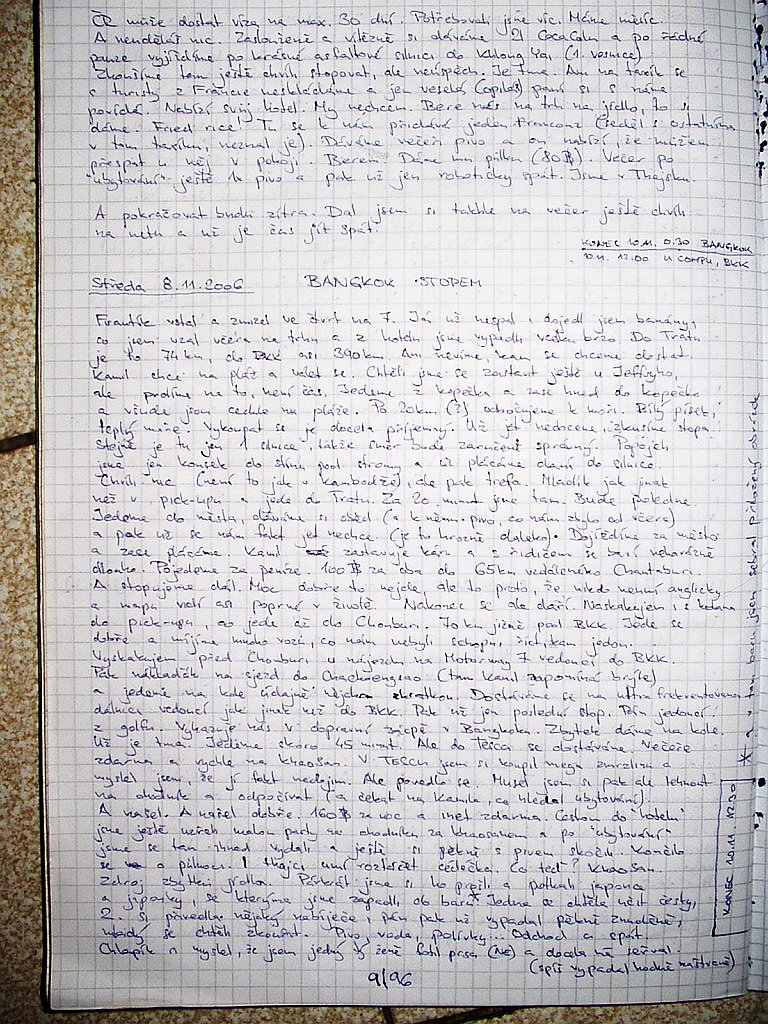 ČR může dostat víza na max. 30 dní. Potřebovali jsme víc. Máme měsíc.
A nenděláš nic. Zaslouženě a vítězně si dáváme 2l CocaColu a po řádné
pauze vyjíždíme po krásné asfaltové silnici do Khlong Yai (1. vesnice)
Zkoušíme tam ještě chvíli stopovat, ale neúspěch. Je tma. Ani na taxík se
s turisty z Francie neskládáme a jen veselá (opilá) paní si s náma
povídá. Nabízí svůj hotel. My nechcem. Bere nás na trh na jídlo, to si
dáme. Fried rice! Tu se k nám přidává jeden Francouz (seděl s ostatníma
v tom taxíku, neznal je). Dáváme večeři pivo a on nabízí, že můžem
přespat u něj v pokoji. Berem. Dáme mu půlku (80 ฿). Večer po
"ubytování" ještě 1x pivo a pak už jen roboticky spát. Jsme v Thajsku.
A pokračovat budu zítra. Dal jsem si takhle na večer ještě chvíli
na netu a už je čas jít spát.
KONEC 10.11. 0.30 BANGKOK
10.11. 12.00 U COMPU, BKK
Středa 8.11.2006 BANGKOK STOPEM
František vstal a zmizel ve čtvrt na 7. Já už nespal i dojedl jsem banány,
co jsem vzal včera na trhu a z hotelu jsme vypadli vcelku brzo. Do Tratu
je to 74 km, do BKK asi 390 km. Ani nevíme, kam se chceme dostat.
Kamil chce na pláž a válet se. Chtěli jsme se zastavit ještě u Jeffryho,
ale prdíme na to, není čas. Jedeme z kopečka a zase hned do kopečka
a všude jsou cedule na pláže. Po 20km (?) odbočujeme k moři. Bílý písek,
teplý moře. Vykoupat se je docela příjemný. Už jet nechceme, zkusíme stopa.
Stejně je tu jen 1 silnice, takže směr bude zaručeně správný. Popojeli
jsme jen kousek do stínu pod stromy a už plácáme dlaní do silnice.
Chvíli nic (není to jak v Kambodže), ale pak trefa. Mladík jak jinak
než v pick-upu a jede do Tratu. Za 20 minut jsme tam. Bude poledne.
Jedeme do města, dáváme si oběd (a k němu pivo, co nám zbylo od včera)
a pak už se nám fakt jet nechce. (je to hrozně daleko). Dojíždíme za město
a zase plácáme. Kamil zastavuje káru a s řidičem se baví nehorázně
dlouho. Pojedeme za peníze. 100 ฿ za oba do 65km vzdáleného Chantaburi.
A stopujeme dál. Moc dobře to nejde, ale to proto, že nikdo neumí anglicky
a mapu vidí asi poprvé v životě. Nakonec se ale daří. Naskakujem i s kolama
do pick-upu, co jede až do Chonburi. 70 km jižně pod BKK. Jede se
dobře a míjíme mnoho vozů, co nám nebyli schopni říct, kam jedou.
Vyskakujem před Chonburi u nájezdu na Motorway 7 vedoucí do BKK.
Pak náklaďák na sjezd do Chachoengsao (tam Kamil zapomíná brýle)
a jedeme na kole údajně nějakou zkratkou. Dostáváme se na ultra frekventovanou
dálnici vedoucí jak jinak než do BKK. Pak už jen poslední stop. Pán jedoucí
z golfu. Vyhazuje nás v dopravní zácpě v Bangkoku. Zbytek dáme na kole.
Už je tma. Jedeme skoro 45 minut. Ale do Tesca se dostáváme. Večeře
zdarma a rychle na khaoSan. V TESCU jsem si koupil mega zmrzlinu a
myslel jsem, že jí fakt nedojím. Ale povedlo se. Musel jsem si pak ale lehnout
na chodník a odpočívat (a čekat na Kamila, co hledal ubytování).
A našel. A našel dobře. 160 ฿ za noc a inet zdarma. Cestou do "hotelu"
jsme ještě uzřeli malou party na chodníku za khaosanem a po "ubytování"
jsme se tam ihned vydali a ještě si pěkně s pivem skočili. Končilo
se o půlnoci. I thajci umí roztáčet cédéčka. Co teď? KhaoSan.
Zdroj zbytků jídla. Párkrát jsme si ho prošli a potkali japonce
a japonky, se kterýma jsme zapadli do baru. Jedna se chtěla učit česky,
2. si přivedla nějaký nabíječe, pán pak už vypadal pěkně znuděně,
Pivo, voda, polívky. Odchod a spát.
Chlapík si myslel, že jsem jedný tý ženě fotil prsa (NE) a docela mě seřval.
(spíš vypadal hodně naštvaně)
9/96
KONEC 10.11 12.30
* v tom baru jsem sebral přiložený obrázek